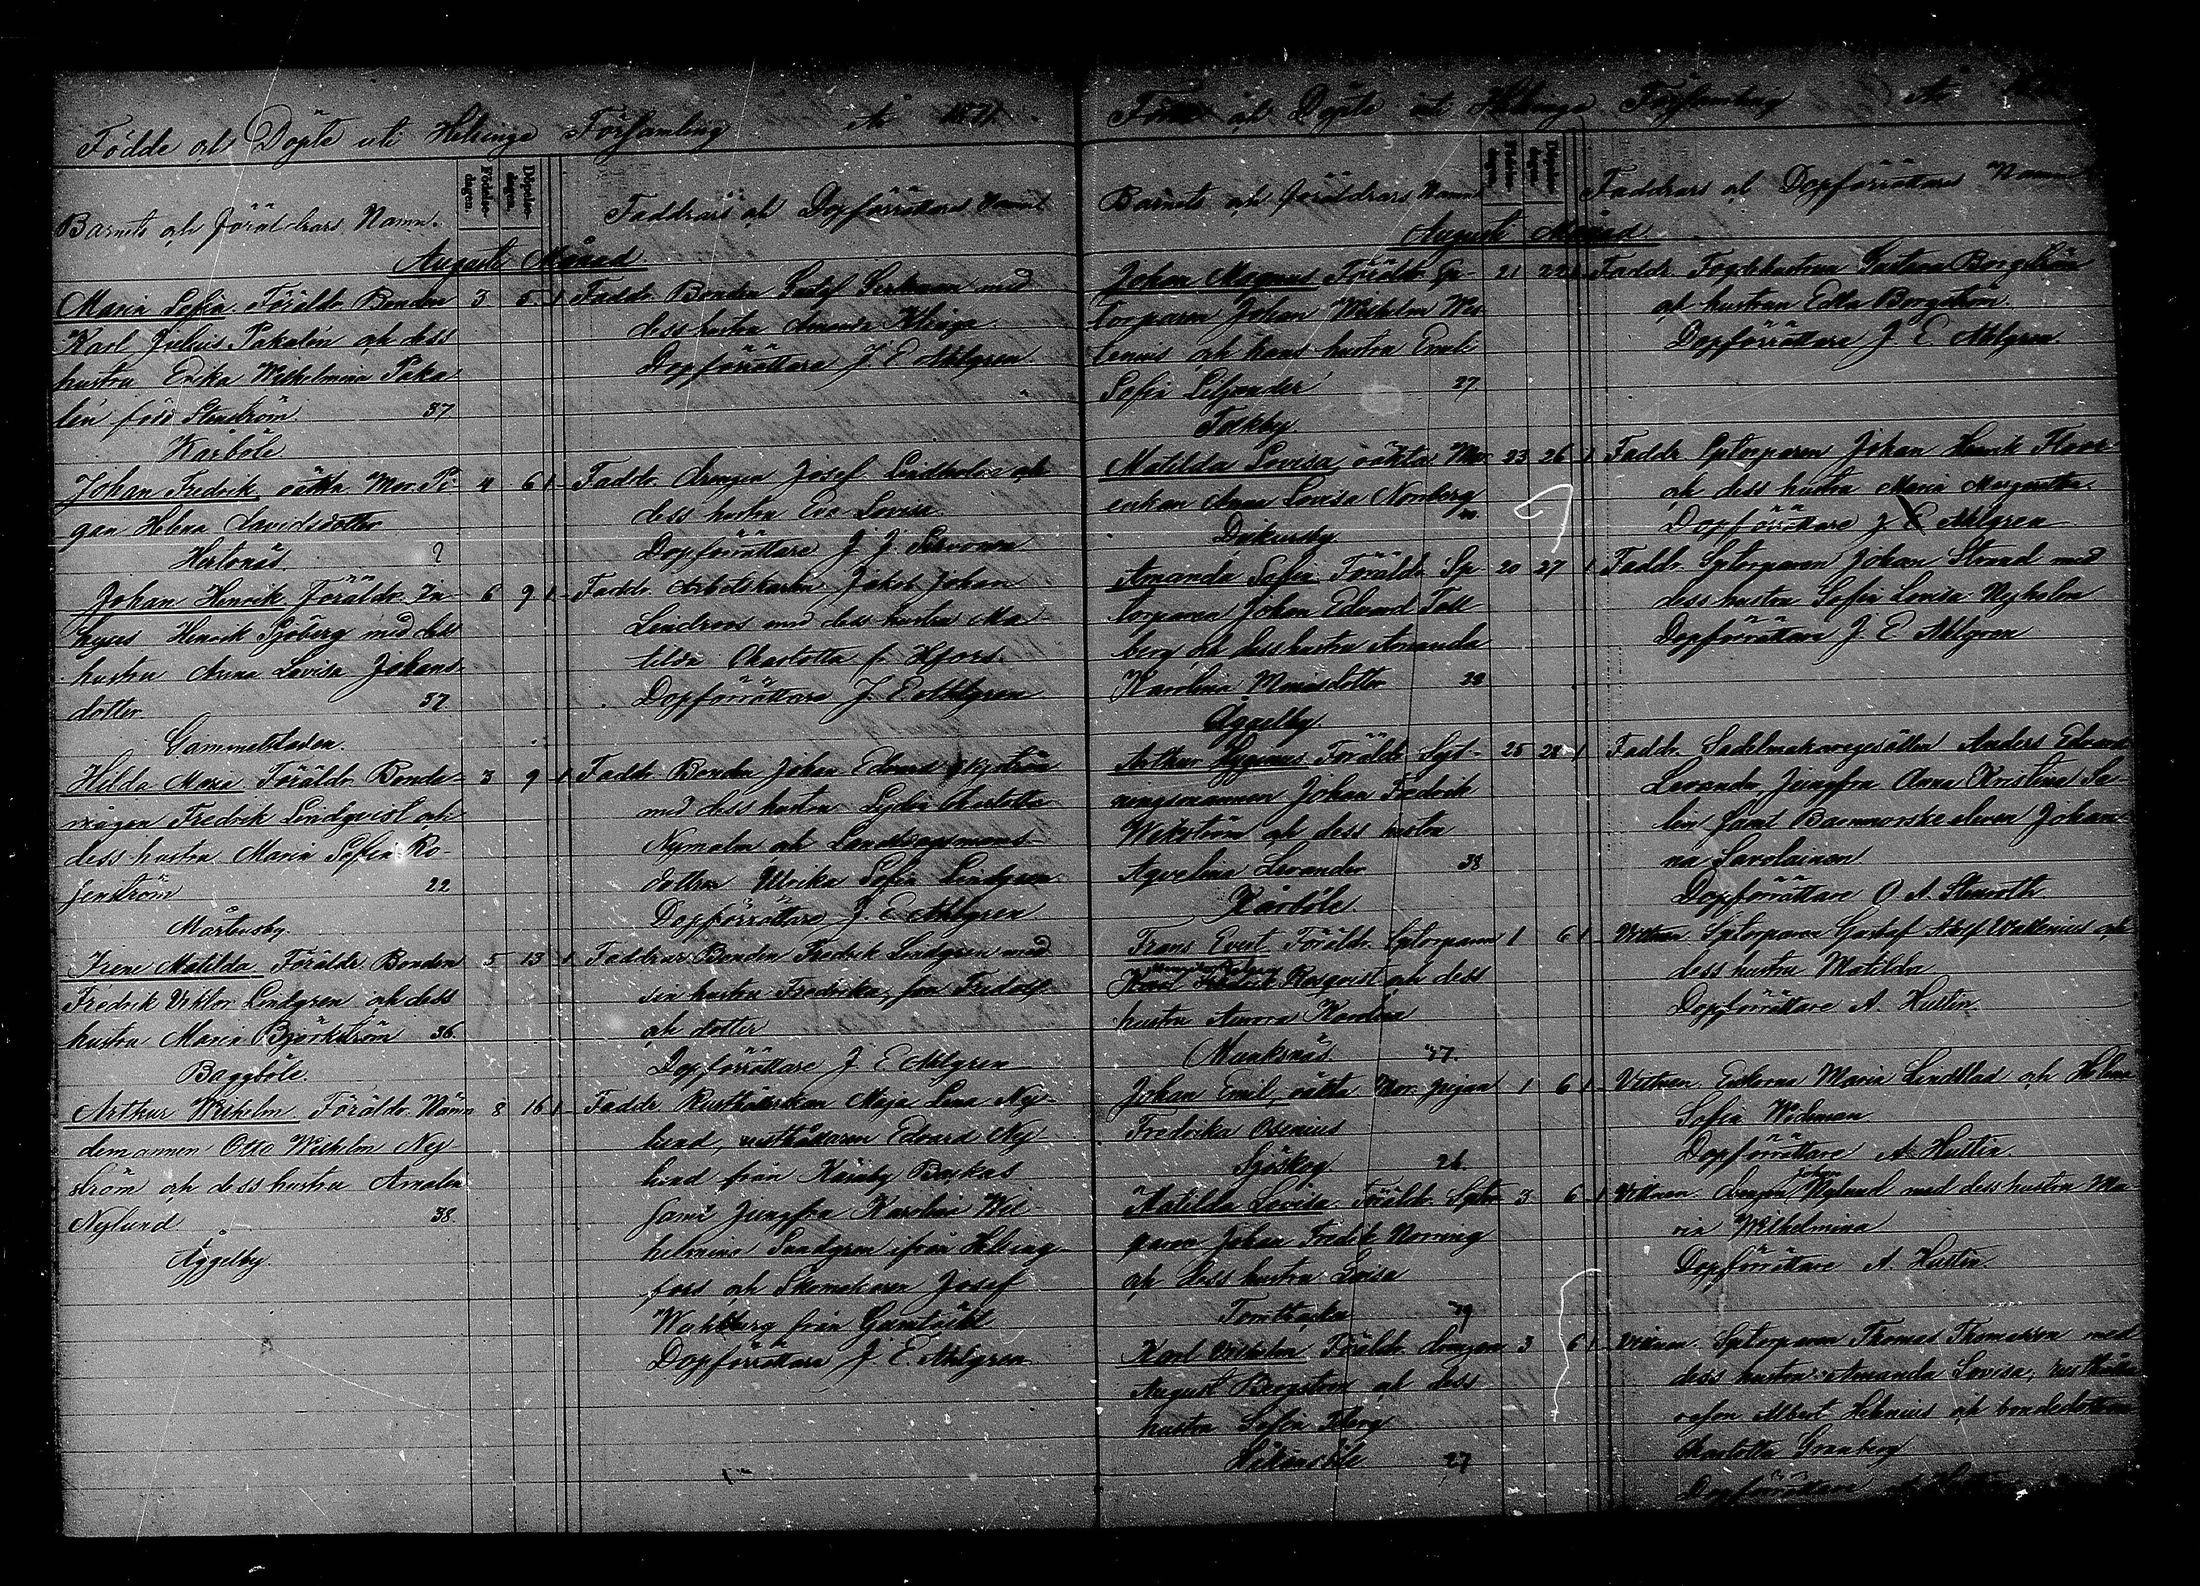 Födde och Döpte uti Helsinge Församling År 1871.
Födelse-
dagen.
Döpelse-
dagen.
Barnets och föräldrars Namn.
Faddrars och Dopförrättares Namn
Augusti Månad
Maria Sofia. Föräldr. Bonden 3 5 1
Karl Julius Pakalén och dess
hustru Erika Wilhelmina Paka
lén född Stenström 37
Kårböle
Faddr. Bonden Gustaf med
dess hustru Amanda Klinga
Dopförrättare J. E. Ahlgren
Johan Fredrik oäkta Mor. Pi- 4 6 1
gan Helena Davidsdotter
Hertonäs. ?
Faddr. Drengen Josef Lindholm och
dess hustru Eva Lovisa
Dopförrättare J. J.
Johan Henrik Föräldr. In- 6 9 1
hyses Henrik Sjöberg med dess
hustru Anna Lovisa Johans-
dotter. 37
Gammelstaden.
Faddr. Arbetskarlen Jakob Johan
Lindroos med dess hustru Ma-
tilda Charlotta fr. Hfors.
Dopförrättare J. E. Ahlgren
Hilda Maria Föräldr. Bonde- 3 9 1
mågen Fredrik Lindqvist och
dess hustru Maria Sofia Ro-
senström 22
Mårtensby.
Faddr. Bonden Johan Edvard Nyström
med dess hustru Lydia Charlotta
Nymalm och Landtdagsmans-
dottren Ulrika Sofia Lindgren
Dopförrättare J. E. Ahlgren
Irene Matilda Föräldr. Bonden 5 13 1
Fredrik Viktor Lindgren och dess
hustru Maria Björkström 36.
Baggböle.
Faddrar Bonden Fredrik Lindgren med
sin hustru Fredrika, son Fridolf
och dotter
Dopförrättare J. E. Ahlgren
Arthur Wilhelm. Föräldr. Näm- 8 16 1
demannen Otto Wilhelm Ny
ström och dess hustru Amalia
Nylund 38.
Åggelby.
Faddr. Rusthållerskan Maja Lena Ny-
lund, rusthållaren Edvard Ny
lund från Kårböle Backas
samt Jungfru Karolina Wil-
helmina Sundgren ifrån Helsing-
fors och Skomakaren Josef
från Gamlas
Dopförrättare J. E. Ahlgren
Födde och Döpte uti Helsinge Församling År
Barnets och föräldrars Namn
Faddrars och Dopförrättares Namn
Augusti Månad
Johan Magnus Föräldr. Sp- 21 22 1
torparen Johan Wilhelm Wes
lenius och hans hustru Emili
Sofia Liljander 27.
Takby.
Faddr. Fogdehustrun Gustava Bergström
och hustrun Edla Bergström.
Dopförrättare J. E. Ahlgren.
Matilda Lovisa, oäkta Mor. 23 26 1
enkan Anna Lovisa Norrberg
Dickursby.
Faddr. Sptorparen Johan Henrik Floor
och dess hustru Maria Margaretha.
Dopförrättare J. E. Ahlgren
Amanda Sofia Föräldr. Sp 20 27 1
torparen Johan Edvard Tall
berg och dess hustru Amanda
Karolina 28
Åggelby.
Faddr. Sptorparen Johan Strand med
dess hustru Sofia Lovisa Nyholm
Dopförrättare J. E. Ahlgren
Arthur Hyginus Föräldr. Syt- 25 28 1
ningsmannen Johan Fredrik
Wikström och dess hustru
Agvelina Levander 38
Kårböle.
Faddr. Sadelmakaregesällen Anders Edvard
Levander Jungfru Anna Kristina Sa-
len samt Barnmorske eleven Johan-
na Savolainen
Dopförrättare O. A. Stenroth.
Frans Evert Föräldr. Sptorparen 1 6 1
Karl Fredrik Rosqvist och dess
hustru Aurora Karolina
Munksnäs. 37.
Vittnen Sptorparen Gustaf Adolf Wallenius och
dess hustru Matilda
Dopförrättare A. Hustin.
Johan Emil, oäkta Mor. pigan 1 6 1
Fredrika Osenius
Sjöskog 26.
Vittnen Enkorna Maria Lindblad och Helena
Sofia Widman
Dopförrättare A. Hustin
Matilda Lovisa. Föräldr. Sptor 3 6 1
paren Johan Fredrik Norring
och dess hustru Lovisa
Tomtbacka 29
Vittnen Drengen Johan Nylund med dess hustru Ma
ria Wilhelmina
Dopförrättare A. Hustin.
Karl Wilhelm Föräldr. drengen 3 6 1
August Bergström och dess
hustru Sofia Flory
Håkansböle 27
Vittnen Sptorparen Thomas Thomasson med
dess hustru Amanda Lovisa, rusthålla
resonen Albert Helenius och bondedottren
Charlotta Granberg
Dopförrättare A. Hustin